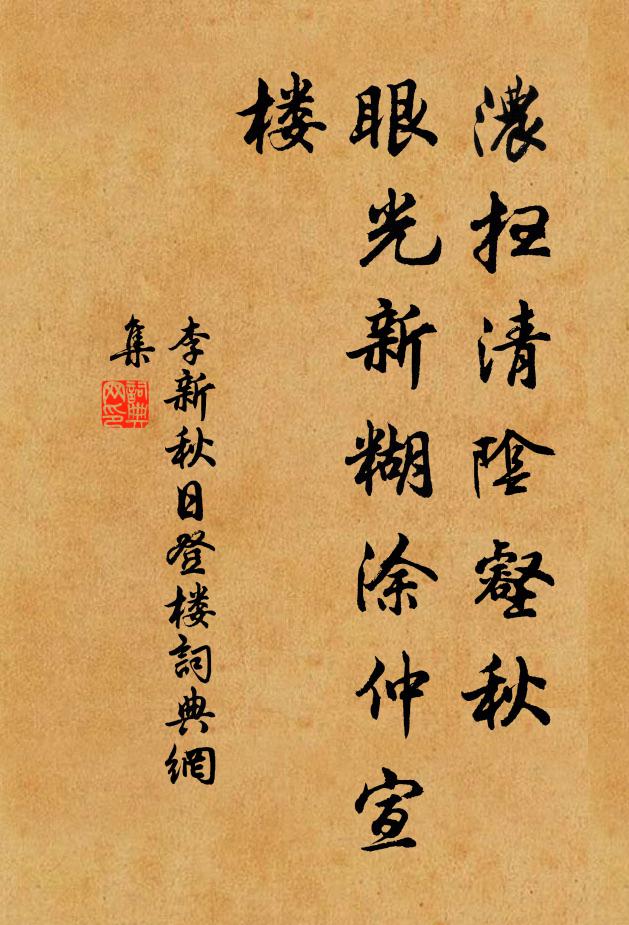 濃扫清陰壑秋
眼光新糊涂仲宣
楼
李新秋日登楼詞典網
集
詞典
网印